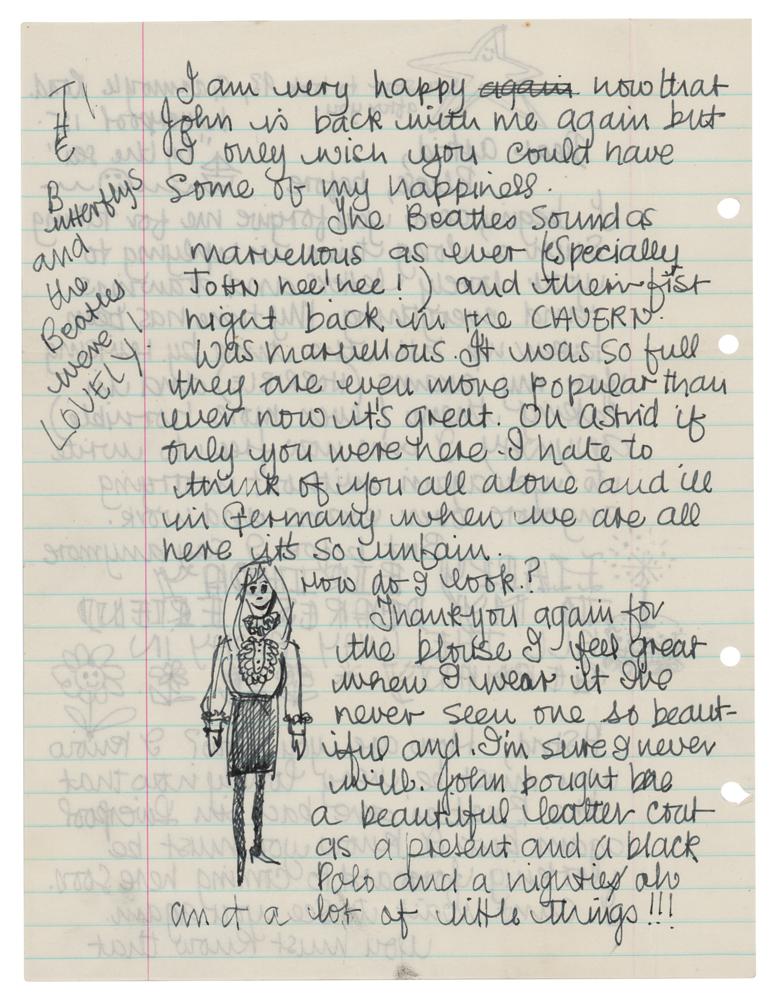 I am very happy again now that
John is back with me again but
I only wish you could have
some of my happiness.
The Beatles Sound as
marvellous as ever (specially
JOHN hee'hee!) and their fist
night back in the CAVERN.
Was marvellous. It was so full
they are even more popular than
ever now it's great. Oh Astrid if
only you were here. I hate to
think of you all alone and ill
in Germany when we are all
here it's so unfair.
How do I look?
Thankyou again for
the blouse I feel great
when I wear it Ive
never seen one so beaut-
iful and I'm sure I never
will. John bought me
a beautiful leather coat
as a present and a black
Polo and a nightie oh
and a lot of little things!!!
THE
Butterflys
and
the
Beatles
were
LOVELY!